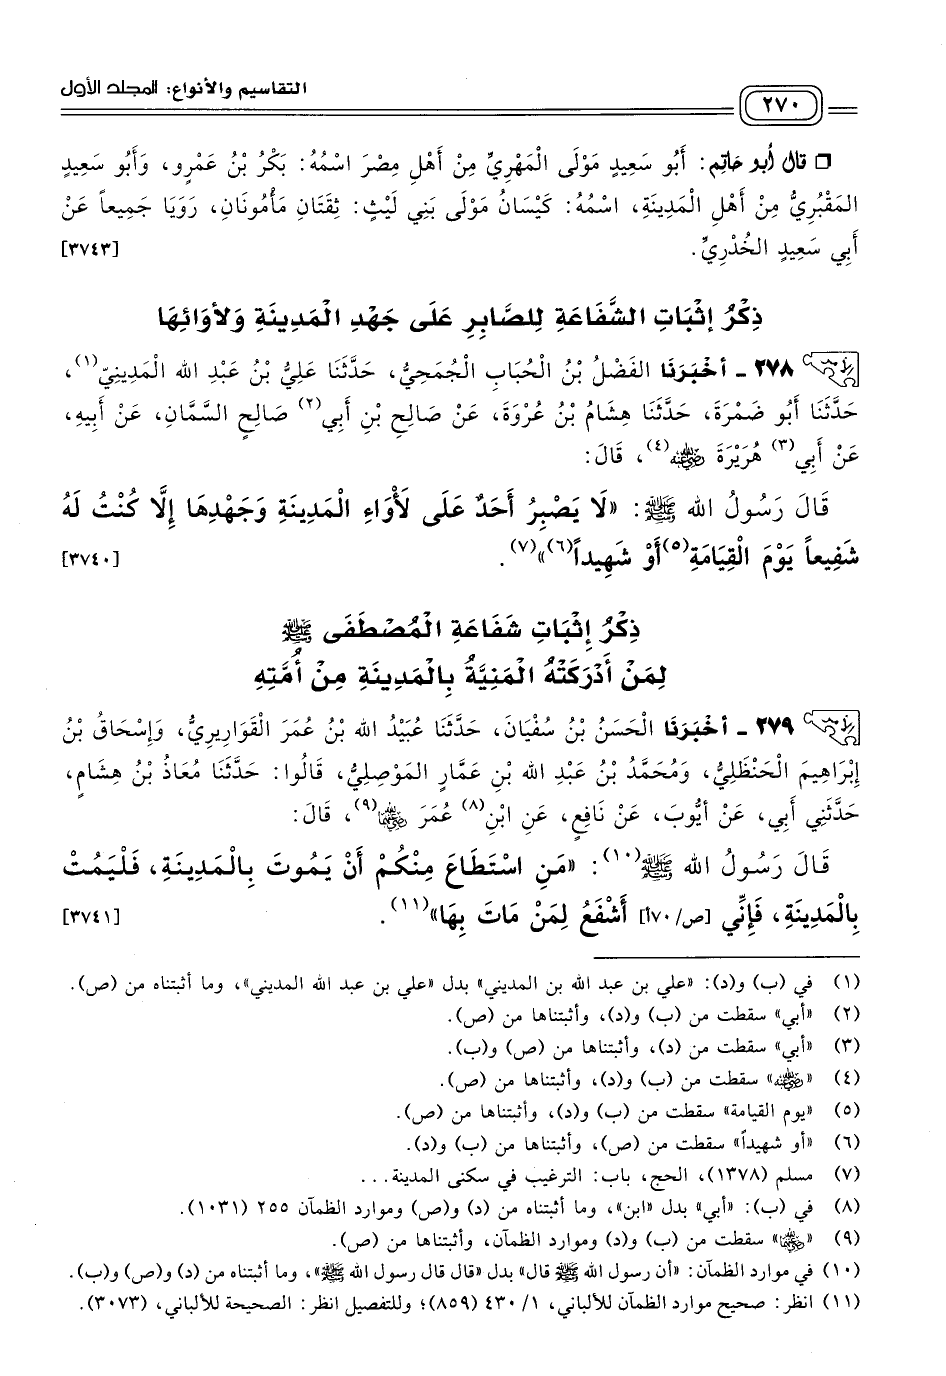 التقاسيم والأنواع: المجلد الأول
٢٧٠
❒ قال أبو حاتم: أَبُو سَعِيدٍ مَوْلَى الْمَهْرِيِّ مِنْ أَهْلِ مِصْرَ اسْمُهُ: بَكْرُ بْنُ عَمْرٍو، وَأَبُو سَعِيدٍ
المَقْبُرِيُّ مِنْ أَهْلِ الْمَدِينَةِ، اسْمُهُ: كَيْسَانُ مَوْلَى بَنِي لَيْثٍ: ثِقَتَانِ مَأْمُونَانِ، رَوَيَا جَمِيعاً عَنْ
أَبِي سَعِيدٍ الخُدْرِيِّ. [٣٧٤٣]
ذِكْرُ إِثْبَاتِ الشَّفَاعَةِ لِلصَّابِرِ عَلَى جَهْدِ الْمَدِينَةِ وَلأوَائِهَا
٢٧٨ - أَخْبَرَنَا الفَضْلُ بْنُ الْحُبَابِ الْجُمَحِيُّ، حَدَّثَنَا عَلِيُّ بْنُ عَبْدِ الله الْمَدِينِيّ(١)،
حَدَّثَنَا أَبُو ضَمْرَةَ، حَدَّثَنَا هِشَامُ بْنُ عُرْوَةَ، عَنْ صَالِحِ بْنِ أَبِي(٢) صَالِحٍ السَّمَّانِ، عَنْ أَبِيهِ،
عَنْ أَبِي(٣) هُرَيْرَةَ رضي الله عنه(٤)، قَالَ:
قَالَ رَسُولُ الله ﷺ: «لَا يَصْبِرُ أَحَدٌ عَلَى لَأْوَاءِ الْمَدِينَةِ وَجَهْدِهَا إِلَّا كُنْتُ لَهُ
شَفِيعاً يَوْمَ الْقِيَامَةِ(٥) أَوْ شَهِيداً(٦)»(٧). [٣٧٤٠]
ذِكْرُ إِثْبَاتِ شَفَاعَةِ الْمُصْطَفَى ﷺ
لِمَنْ أَدْرَكَتْهُ الْمَنِيَّةُ بِالْمَدِينَةِ مِنْ أُمَّتِهِ
٢٧٩ - أَخْبَرَنَا الْحَسَنُ بْنُ سُفْيَانَ، حَدَّثَنَا عُبَيْدُ الله بْنُ عُمَرَ الْقَوَارِيرِيُّ، وَإِسْحَاقُ بْنُ
إِبْرَاهِيمَ الْحَنْظَلِيُّ، وَمُحَمَّدُ بْنُ عَبْدِ الله بْنِ عَمَّارٍ المَوْصِلِيُّ، قَالُوا: حَدَّثَنَا مُعَاذُ بْنُ هِشَامٍ،
حَدَّثَنِي أَبِي، عَنْ أَيُّوبَ، عَنْ نَافِعٍ، عَنِ ابْنِ(٨) عُمَرَ رضي الله عنهما(٩)، قَالَ:
قَالَ رَسُولُ الله ﷺ(١٠): «مَنِ اسْتَطَاعَ مِنْكُمْ أَنْ يَمُوتَ بِالْمَدِينَةِ، فَلْيَمُتْ
بِالْمَدِينَةِ، فَإِنِّي [ص/١٧٠أ] أَشْفَعُ لِمَنْ مَاتَ بِهَا»(١١). [٣٧٤١]
(١) في (ب) و(د): «علي بن عبد الله بن المديني» بدل «علي بن عبد الله المديني»، وما أثبتناه من (ص).
(٢) «أبي» سقطت من (ب) و(د)، وأثبتناها من (ص).
(٣) «أبي» سقطت من (د)، وأثبتناها من (ص) و(ب).
(٤) «رضي الله عنه» سقطت من (ب) و(د)، وأثبتناها من (ص).
(٥) «يوم القيامة» سقطت من (ب) و(د)، وأثبتناها من (ص).
(٦) «أو شهيداً» سقطت من (ص)، وأثبتناها من (ب) و(د).
(٧) مسلم (١٣٧٨)، الحج، باب: الترغيب في سكنى المدينة...
(٨) في (ب): «أبي» بدل «ابن»، وما أثبتناه من (د) و(ص) وموارد الظمآن ٢٥٥ (١٠٣١).
(٩) «رضي الله عنهما» سقطت من (ب) و(د) وموارد الظمآن، وأثبتناها من (ص).
(١٠) في موارد الظمآن: «أن رسول الله ﷺ قال» بدل «قال قال رسول الله ﷺ»، وما أثبتناه من (د) و(ص) و(ب).
(١١) انظر: صحيح موارد الظمآن للألباني، ١/ ٤٣٠ (٨٥٩)؛ وللتفصيل انظر: الصحيحة للألباني، (٣٠٧٣).